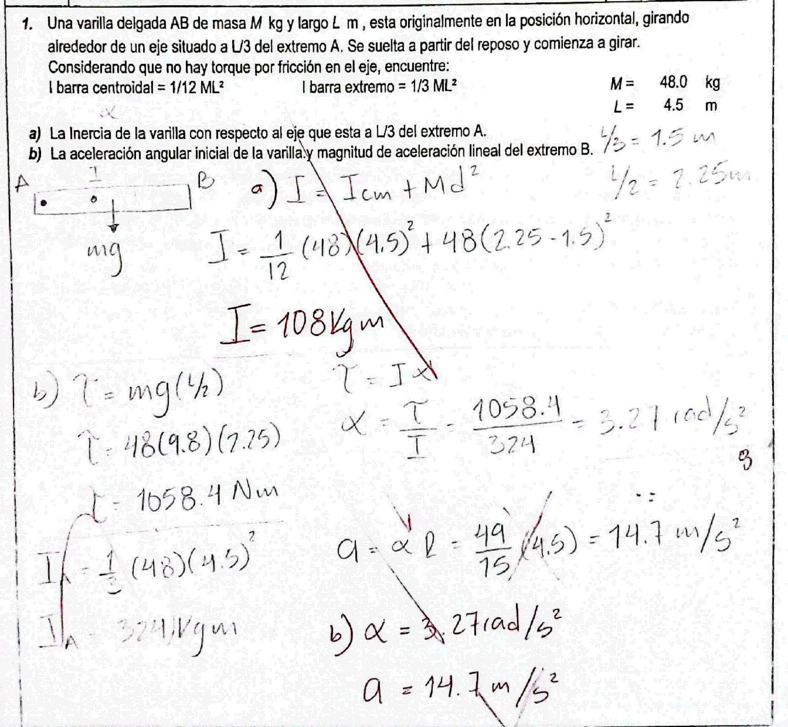 1. Una varilla delgada AB de masa M kg y largo L m , esta originalmente en la posición horizontal, girando
alrededor de un eje situado a L/3 del extremo A. Se suelta a partir del reposo y comienza a girar.
Considerando que no hay torque por fricción en el eje, encuentre:
I barra centroidal = 1/12 ML² I barra extremo = 1/3 ML² M = 48.0 kg
L = 4.5 m
α
a) La Inercia de la varilla con respecto al eje que esta a L/3 del extremo A.
b) La aceleración angular inicial de la varilla.y magnitud de aceleración lineal del extremo B.
L/3 = 1.5 m
L/2 = 2.25m
A I B
mg
a) I = Icm + Md²
I = 1/12 (48)(4.5)² + 48(2.25 - 1.5)²
I = 108 Kg m
b) τ = mg(L/2)
τ = 48(9.8)(2.25)
τ = 1058.4 Nm
I_A = 1/3 (48)(4.5)²
I_A = 324 Kgm
τ = Iα
α = τ/I = 1058.4/324 = 3.27 rad/s²
a = α R = 49/15 (4.5) = 14.7 m/s²
b) α = 3.27 rad/s²
a = 14.7 m/s²